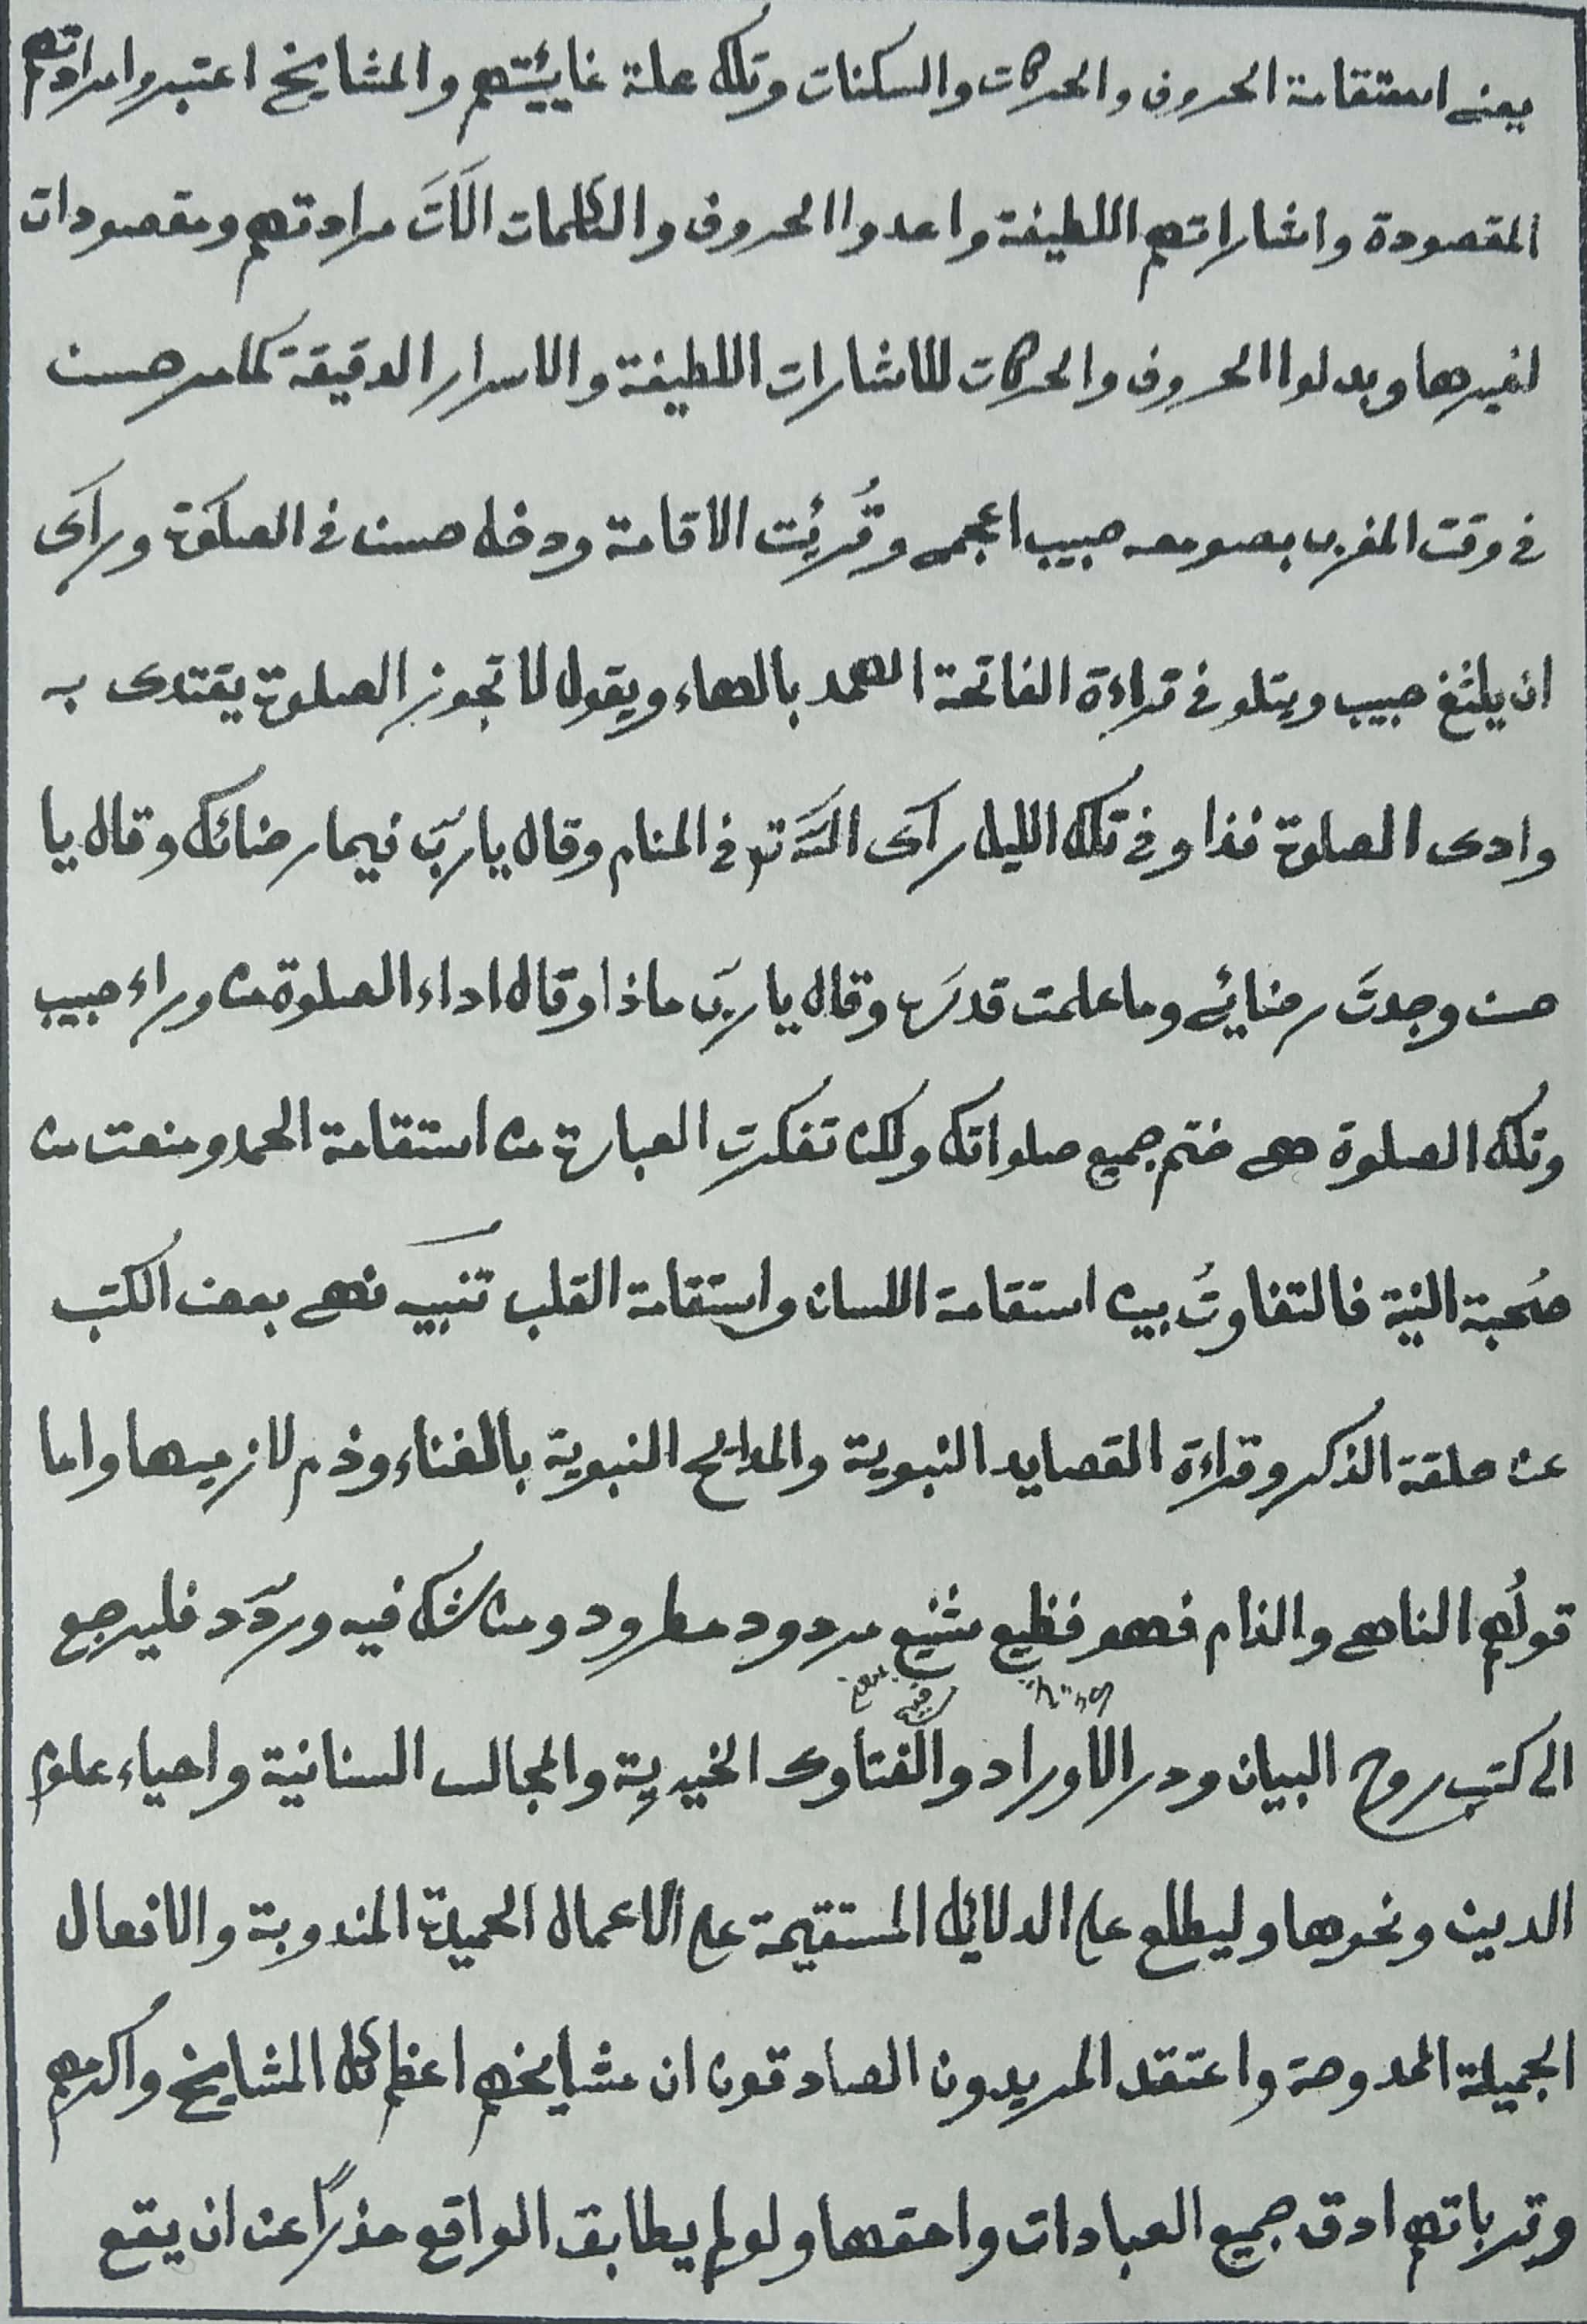 يعنى استقامة الحروف والحركات والسكنات وتلك علة غائيّتهم والمشايخ اعتبروا مرادتهم
المقصودة واشاراتهم اللطيفة واعدوا الحروف والكلمات الَاتَ مرادتهم ومقصودات
لغيرها وبدلوا الحروف والحركات للاشارات اللطيفة والاسرار الدقيقة كما مر حسن
فى وقت المغرب بصومعه حبيب اعجمى وقُرِئت الاقامة ودخل حسن فى الصلوة ورآى
ان يلثغ حبيب ويتلو فى قراءة الفاتحة الهمد بالهاء ويقول لا تجوز الصلوة يقتدى به
وادى الصلوة فذا وفى تلك الليل رآى اللّه تع فى المنام وقال يا ربّ فيما رضائك وقال يا
حسن وجدتَ رضايئ وما علمت قدره وقال يا ربّ ماذا وقال اداء الصلوة من وراء حبيب
وتلك الصلوة هى ختم جميع صلواتك ولكن تفكرت العبارة من استقامة الحمد ومنعت من
صُحبة النية فالتفاوتُ بين استقامة اللسان واستقامة القلب تنبيه نهى بعض الكتب
عن حلقة الذكر وقراءة القصايد النبوية والمدايح النبوية بالغناء وذم لازميها واما
قولُهم الناهى والذام فهو فظيع شنيع مردود مطرود ومن شك فيه وردّد فليرجع
الى كتب روح البيان ودر الاوراد والفتاوى الخيرية والمجالس السنانية واحياء علوم
الدين ونحوها وليطلع على الدلائل المستقيمة على الاعمال الحميدة المندوبة والافعال
الجميلة الممدوحة واعتقد المريدون الصادقون ان مشايخهم اعظم كل المشايخ واكرمهم
وترباتهم ادق جميع العبادات واحقها ولو لم يطابق الواقع حذرًا عن ان يقع